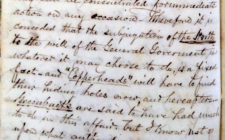 and concentrated for immediate
action on any occasion. Therefore it is
conceded that the subjugation of the South
to the will of the General Government is
whatever it may choose to do, is a fixed
fact — and "Copperheads" will have to find
their hiding holes over, and
are said to have had much
to do in this affair but I know not
upon what